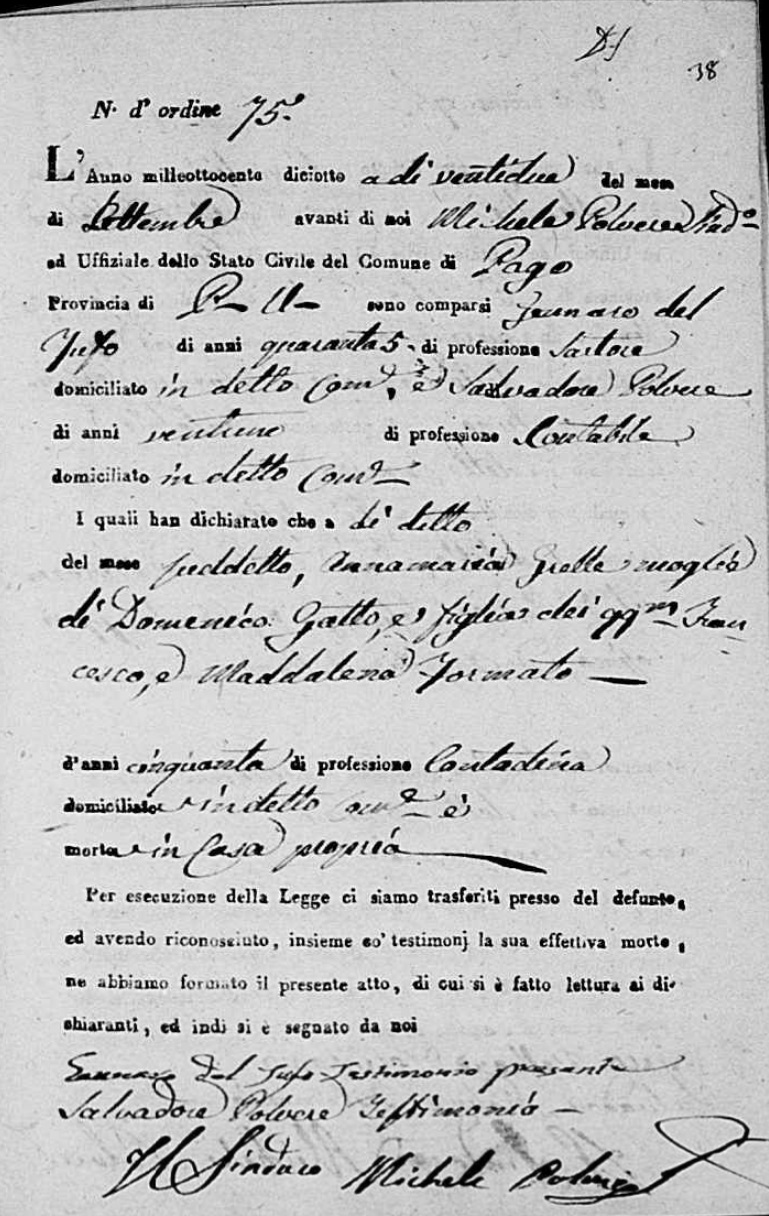 38
N. d' ordine 75.
L' Anno milleottocento diciotto a di ventidue del mese
di Settembre avanti di noi Michele Polvere Sind.o
ed Uffiziale dello Stato Civile del Comune di Pago
Provincia di P. U. sono comparsi Gennaro del
Jufo di anni quaranta 5 di professione Sartore
domiciliato in detto Com.e, e Salvadore Polvere
di anni ventuno di professione Contabile
domiciliato in detto Com.e
I quali han dichiarato che a di detto
del mese suddetto, Annamaria Grelle moglie
di Domenico Gatto, e figlia dei qq.m Fran
cesco, e Maddalena Formato
d'anni cinquanta di professione Contadina
domiciliata in detto Com.e è
morta in Casa propria
Per esecuzione della Legge ci siamo trasferiti presso del defunto,
ed avendo riconosciuto, insieme co' testimonj la sua effettiva morte,
ne abbiamo formato il presente atto, di cui si è fatto lettura ai di-
chiaranti, ed indi si è segnato da noi
Gennaro Del Jufo Testimonio presente
Salvadore Polvere Testimonio
Il Sindaco Michele Polvere